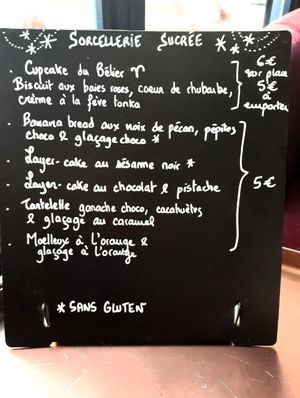 Sorcellerie Sucrée
. Cupcake du Bélier ♈
Biscuit aux baies roses, coeur de rhubarbe,
crème à la fève tonka
6€
sur place
5€
à
emporter
. Banana bread aux noix de pécan, pépites
choco & glaçage choco *
. Layer-cake au sésame noir *
. Layer-cake au chocolat & pistache
. Tartelette ganache choco, cacahuètes
& glaçage au caramel
. Moelleux à l'orange &
glaçage à l'orange
5€
* SANS GLUTEN